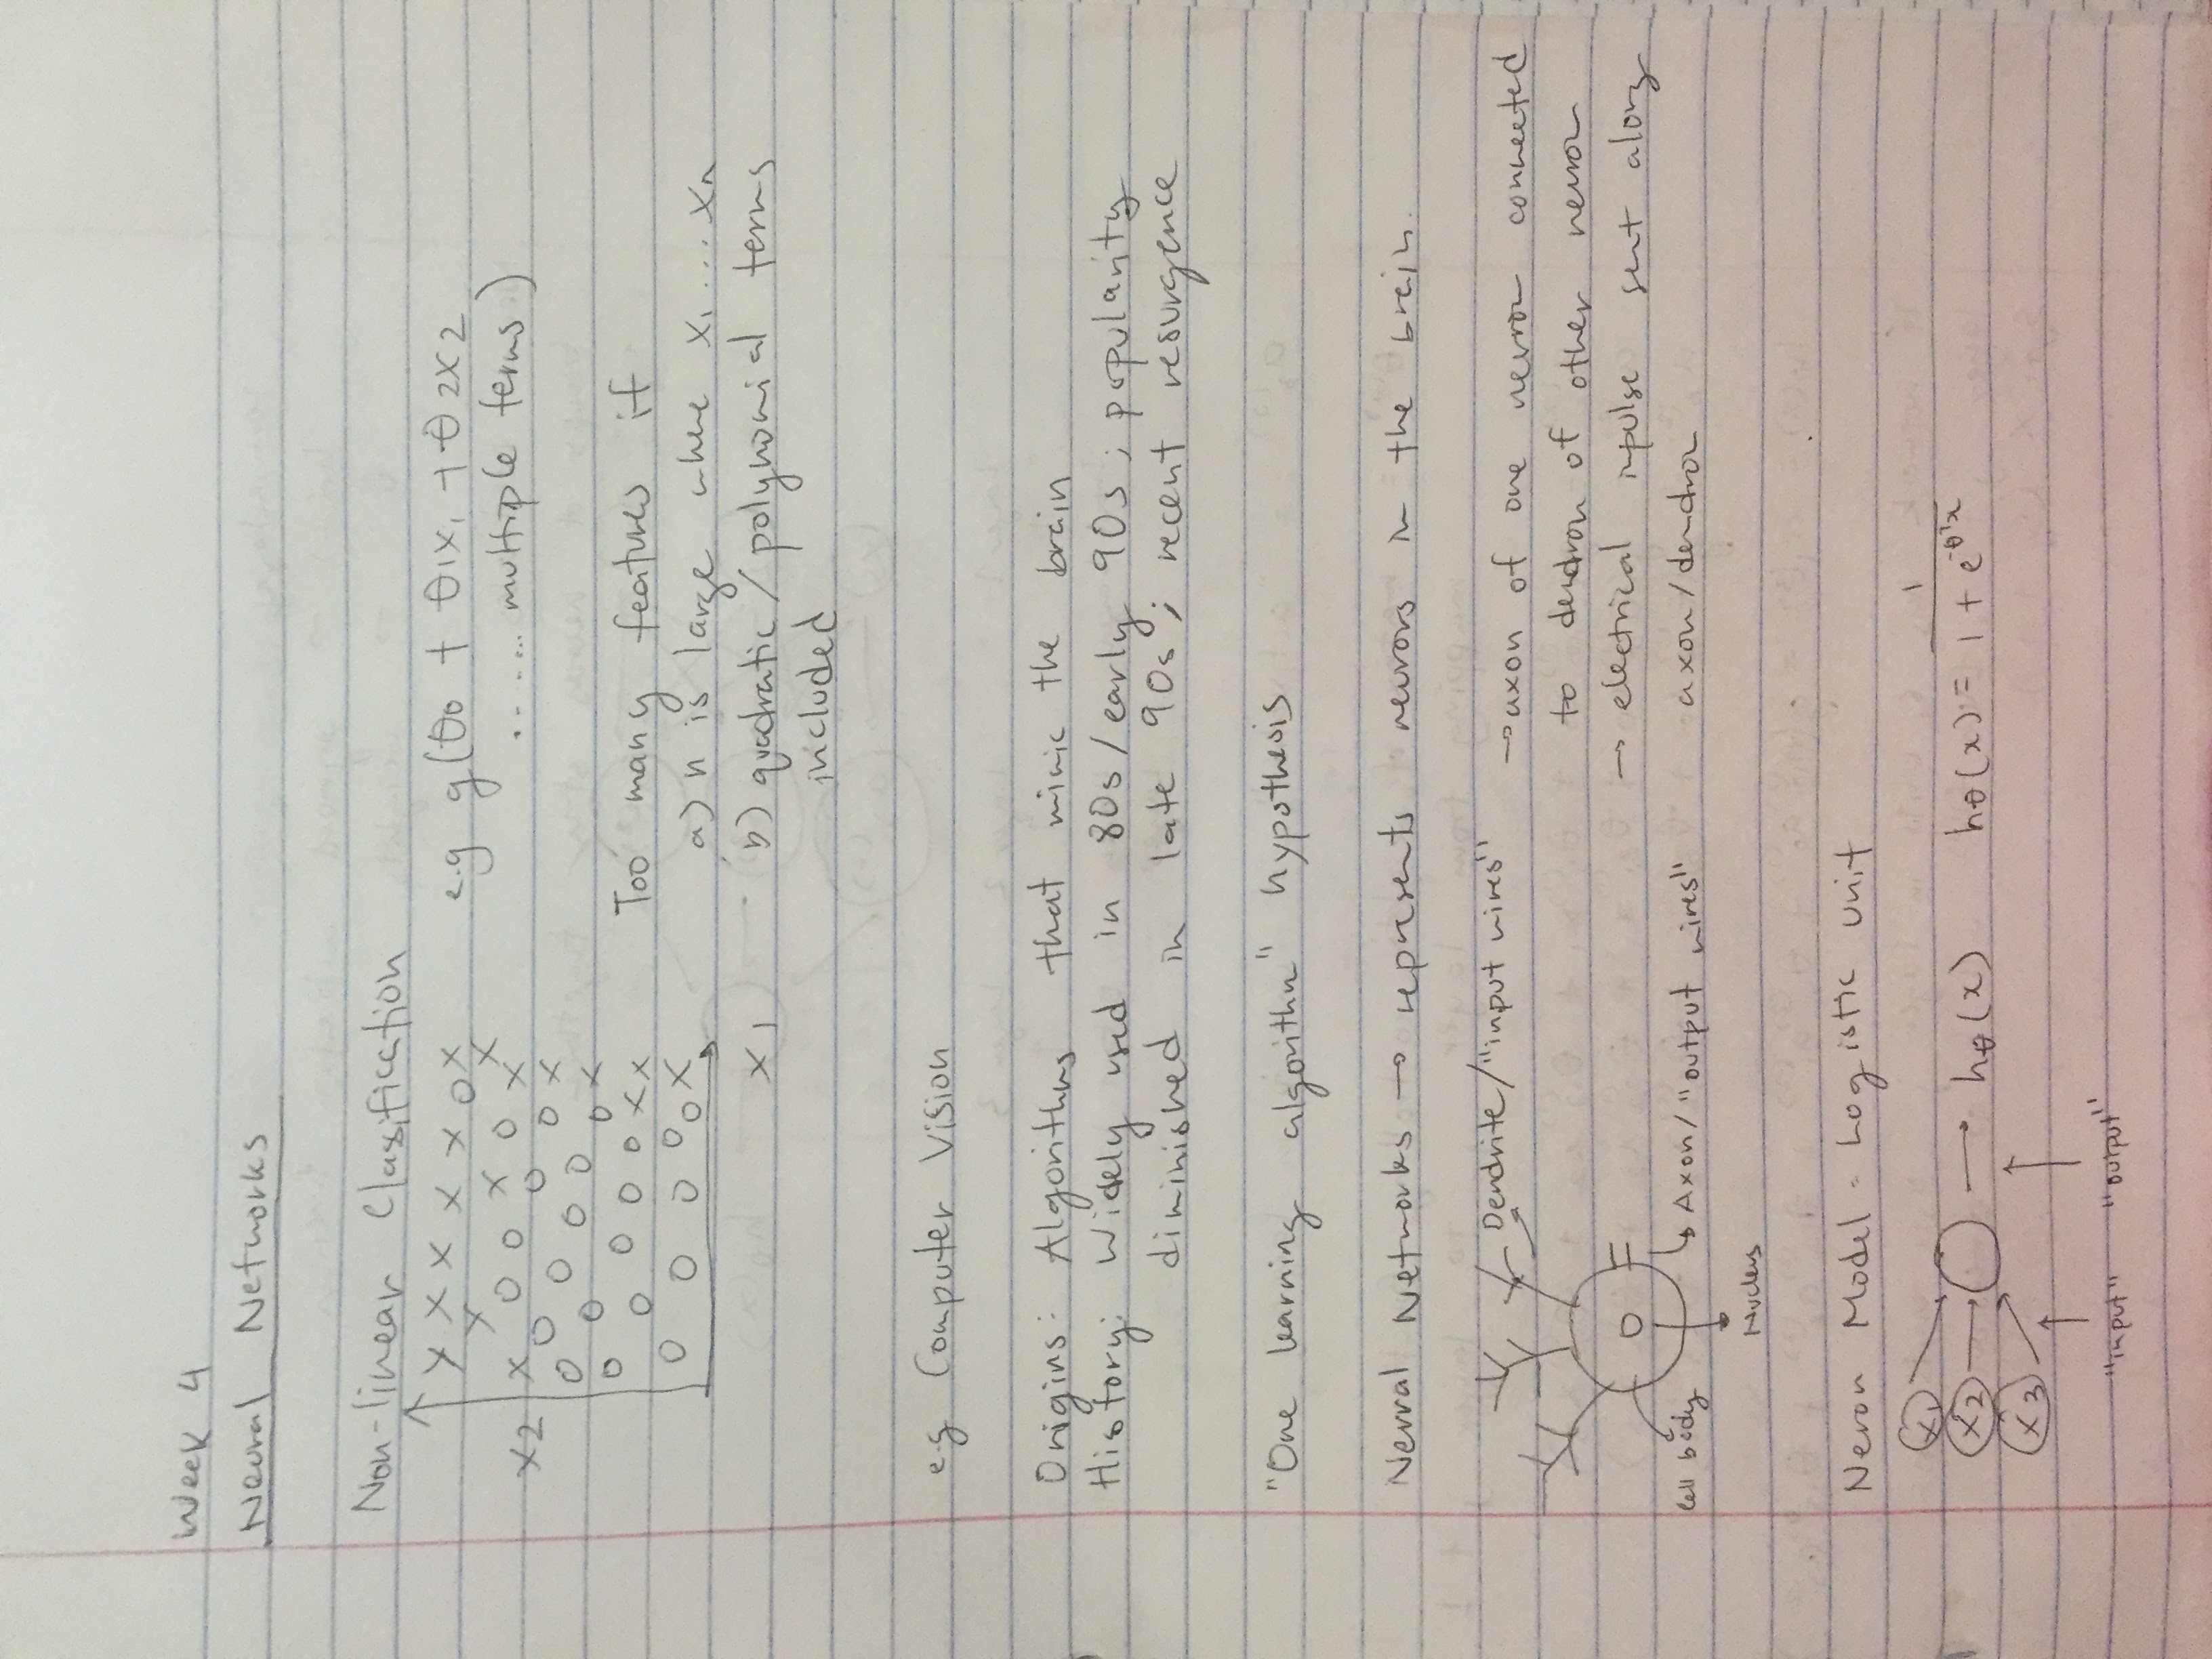 Week 4
Neural Networks
Non-linear Classification
x2
x1
e.g g(θ0 + θ1x1 + θ2x2
...... multiple terms)
Too many features if
a) n is large where x1 .... xn
b) quadratic / polynomial terms
included
e.g Computer Vision
Origins: Algorithms that mimic the brain
History: Widely used in 80s/early 90s; popularity
diminished in late 90s; recent resurgence
"One learning algorithm" hypothesis
Neural Networks → represents neurons in the brain.
Dendrite/"input wires"
Cell body
Axon/"output wires"
Nucleus
→ axon of one neuron connected
to dendron of other neuron
→ electrical impulse sent along
axon/dendron
Neron Model = Logistic unit
x1
x2 → hθ(x) hθ(x) = 1 / 1 + e^-θᵀx
x3
"input" "output"